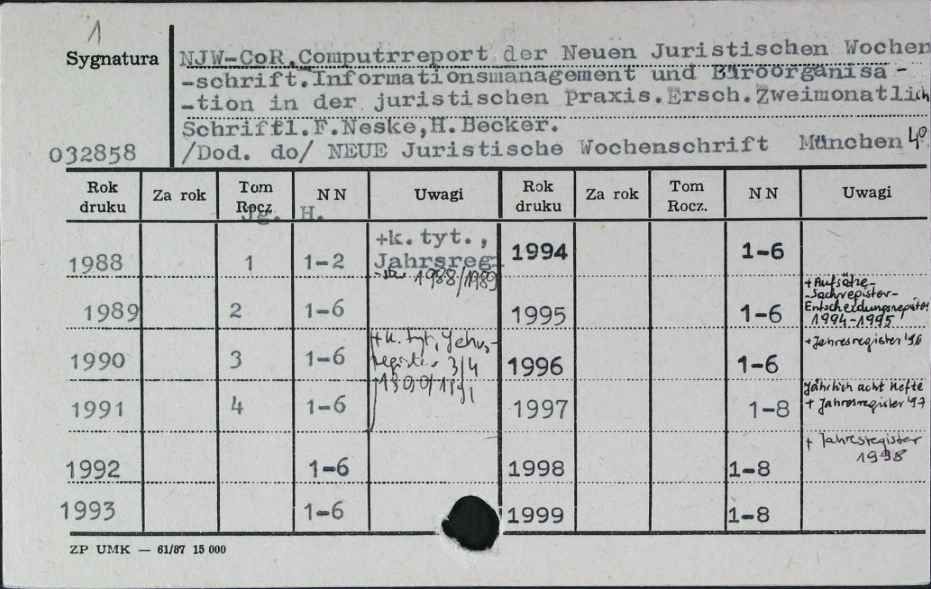 1
Sygnatura
NJW-CoR.Computrreport der Neuen Juristischen Wochen
-schrift.Informationsmanagement und Büroorganisa-
-tion in der juristischen Praxis.Ersch.Zweimonatlich
Schriftl.F.Neske,H.Becker.
032858 /Dod. do/ NEUE Juristische Wochenschrift München 4°
Rok druku Za rok Tom Rocz. NN Uwagi Rok druku Za rok Tom Rocz. NN Uwagi
Jg. H.
1988 1 1-2 +k. tyt., Jahrsreg 1988/1989 1994 1-6
1989 2 1-6 1995 1-6 +Aufsätze-
-Sachregister-
Entscheidungsregister
1994-1995
1990 3 1-6 +k. tyt, Jahrs-
register 3/4
1990/1991 1996 1-6 +Jahresregister '96
1991 4 1-6 1997 1-8 Jährlich acht Hefte
+ Jahresregister '97
1992 1-6 1998 1-8 + Jahresregister
1998
1993 1-6 1999 1-8
ZP UMK — 61/87 15 000